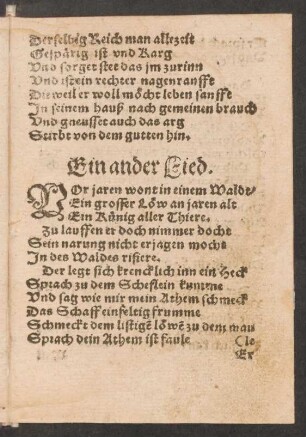 Derselbig Reich man allezeit
Gespärig ist vnd Karg
Vnd sorget stet das jm zurinn
Vnd ist ein rechter nagenranfft
Dieweil er woll möcht leben sanffte
In seinem hauß nach gemeinen brauch
Vnd geusset auch das arg
Stirbt von dem gutten hin.
Ein ander Lied.
VOr jaren wont in einem Walde/
Ein grosser Löw an jaren alt
Ein Künig aller Thiere.
Zu lauffen er doch nimmer docht
Sein narung nicht erjagen mocht
In des Waldes rifiere.
Der legt sich krencklich inn ein Heck
Sprach zu dem Scheflein kumme
Vnd sag wie mir mein Athem schmeck
Das Schaff einfeltig frumme
Schmeckt dem listigẽ lôwẽ zu dem mau
Sprach dein Athem ist faule (le
Er